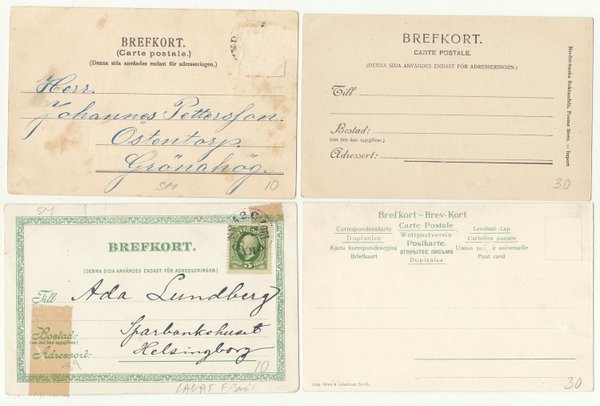 BREFKORT.
(Carte postale.)
(Denna sida användes endast för adresseringen.)
Herr.
Johannes Pettersson.
Östentorp
Grönahög.
SM
10
BREFKORT.
CARTE POSTALE.
(DENNA SIDA ANVÄNDES ENDAST FÖR ADRESSERINGEN.)
Till
Bostad:
(om den kan uppgifvas.)
Adressort:
Import
30
SM
BREFKORT.
(DENNA SIDA ANVÄNDES ENDAST FÖR ADRESSERINGEN.)
Till Ada Lundberg
Bostad: Sparbankshuset
(om den kan uppgifvas.)
Adressort: Helsingborg
5
10
LAGAT
Brefkort - Brev-Kort
Carte Postale
Correspondenzkarte
Levelezö-Lap
Dopisnice
Weltpostverein
Cartolina postale
Karta korrespondencyjna
Postkarte.
Union postale universelle
Briefkaart
ОТКРЫТОЕ ПИСЬМО
Post card
Dopisnica
30